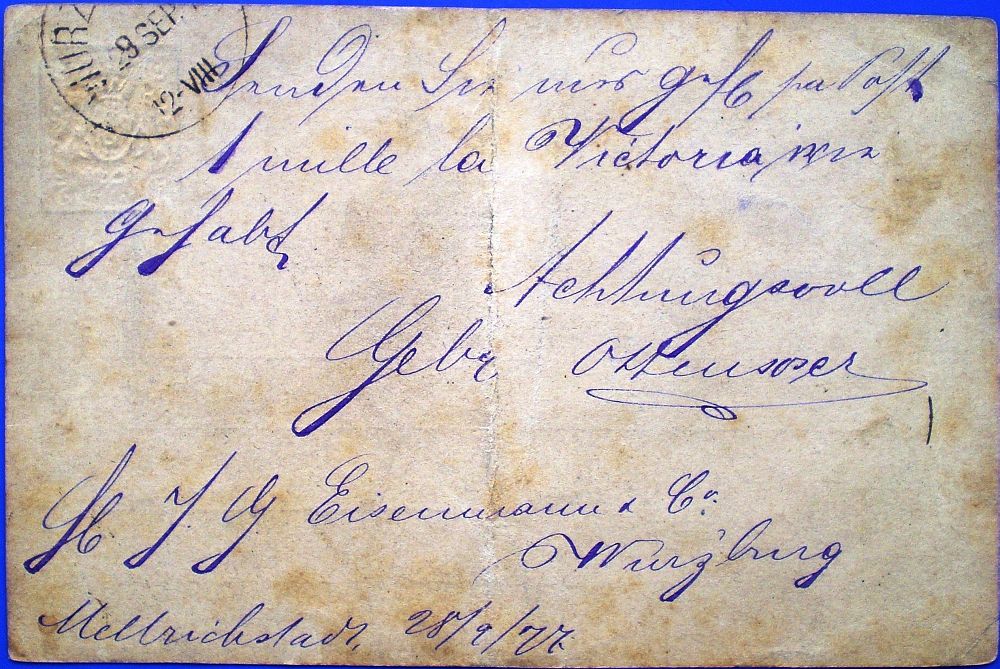 WÜRZBURG
28 SEP.
12-VIII
Senden Sie uns gefl per Post
1 mille la Victoria wie
gehabt
Achtungsvoll
Gebr Ottensoser
H. J. G. Eisenmann & Co.
Würzburg
Mellrichstadt, 28/9/77.